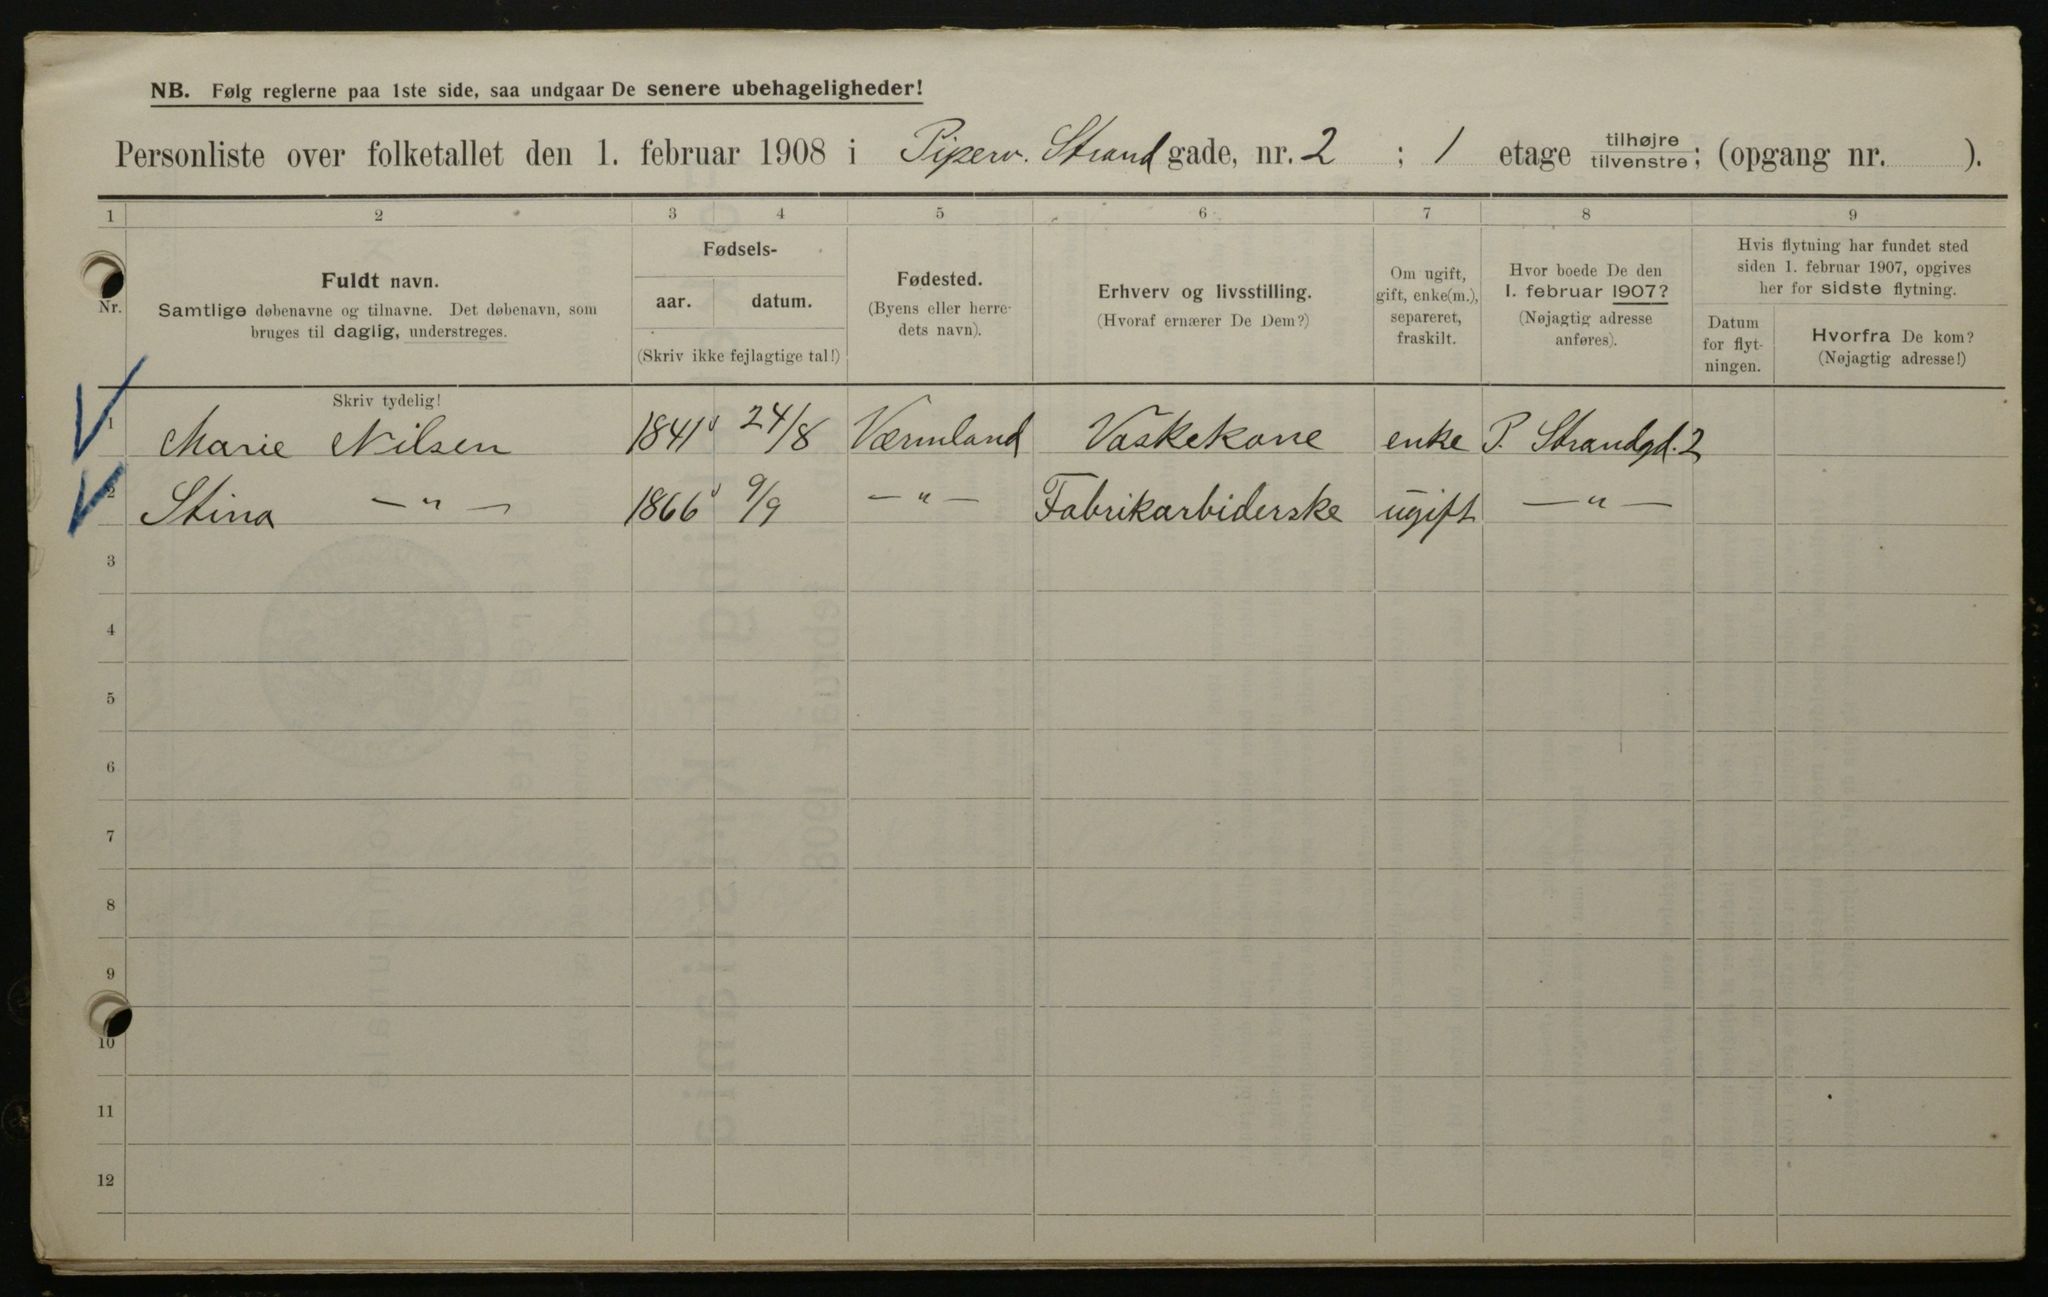 NB. Følg reglerne paa 1ste side, saa undgaar De senere ubehageligheder!
Personliste over folketallet den 1. februar 1908 i Piperv. Strand gade, nr. 2 ; 1 etage tilhøjre tilvenstre; (opgang nr. ).
1 2 3 4 5 6 7 8 9
Nr.
Fuldt navn.
Samtlige døbenavne og tilnavne. Det døbenavn, som
bruges til daglig, understreges.
Fødsels-
aar. datum.
(Skriv ikke fejlagtige tal!)
Fødested.
(Byens eller herre-
dets navn).
Erhverv og livsstilling.
(Hvoraf ernærer De Dem?)
Om ugift,
gift, enke(m.),
separeret,
fraskilt.
Hvor boede De den
1. februar 1907?
(Nøjagtig adresse
anføres).
Hvis flytning har fundet sted
siden 1. februar 1907, opgives
her for sidste flytning.
Datum
for flyt-
ningen.
Hvorfra De kom?
(Nøjagtig adresse!)
Skriv tydelig!
1 Marie Nilsen 1841 24/8 Værmland Vaskekone enke P. Strandgd. 2
2 Stina — " — 1866 9/9 — " — Fabrikarbiderske ugift — " —
3
4
5
6
7
8
9
10
11
12